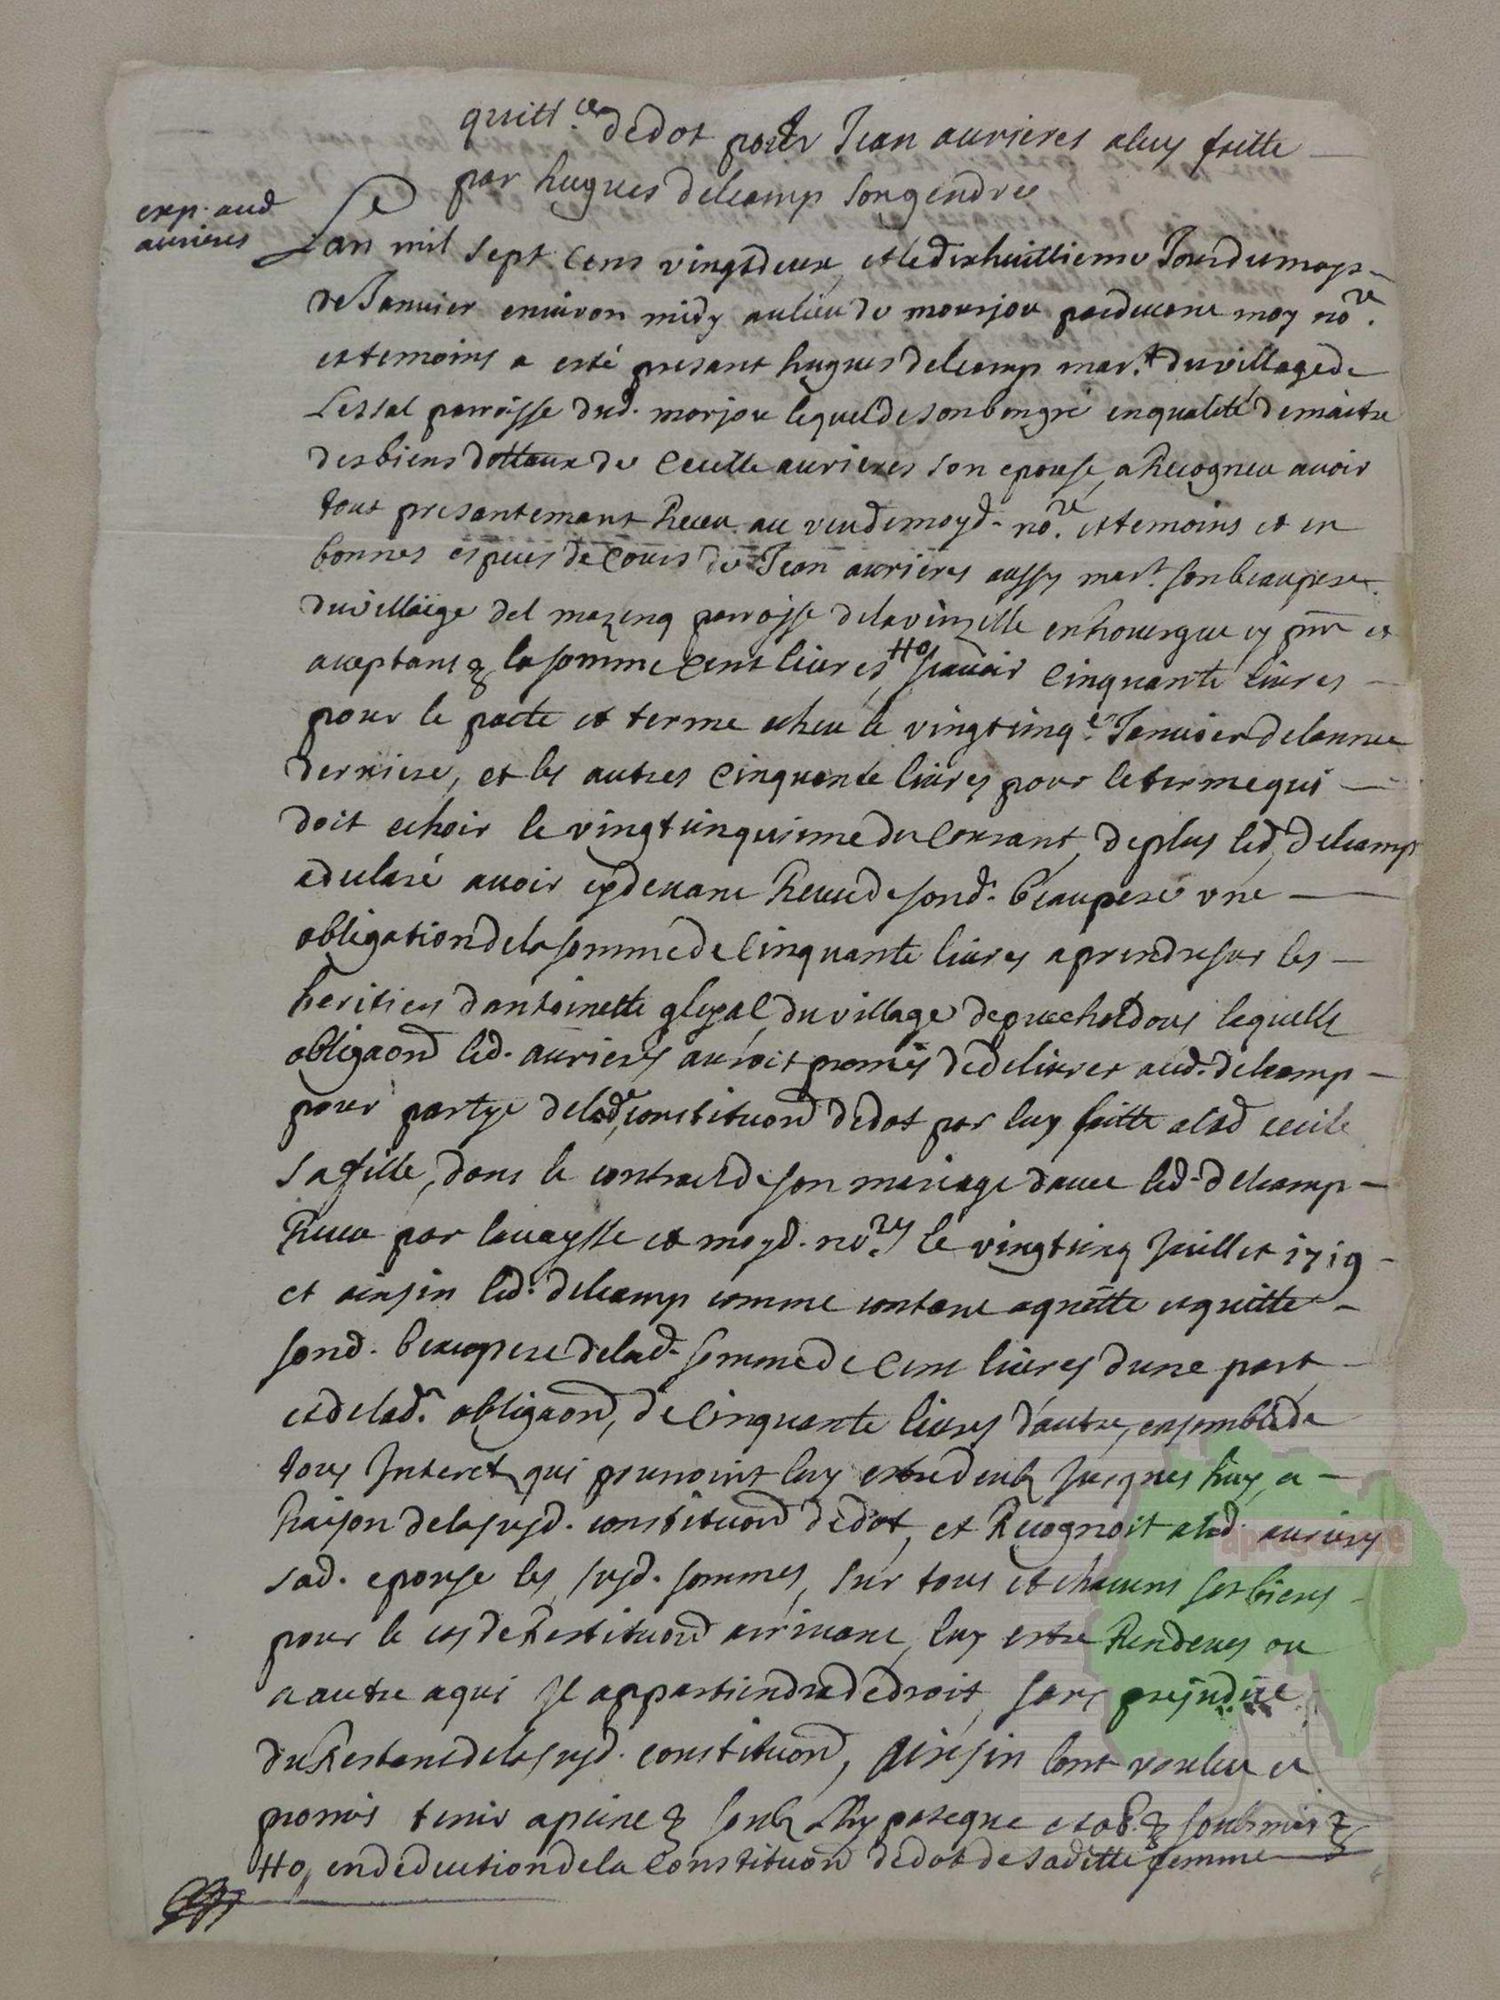 quitt.ce de dot pour Jean aurieres a luy faitte
par hugues delcamp son gendre
exp. aud
aurieres
Lan mil sept cens vingt deux et le dix huittieme Jour du moys
de Janvier environ midy au lieu de mourjou par devant moy no.re
et temoins a esté presant hugues delcamp mar.t du village de
Lessal parroisse dud. morjou lequel de son bon gré en qualité de maitre
des biens dottaux de Cecille aurieres son epouse, a Recogneu avoir
tout presantemant Receu au veu de moyd. no.re et temoins et en
bonnes especes de cours de Jean aurieres aussy mar.t son beaupere
du villaige del mazenq parroisse de la vinzelle en Rouergue cy pnt et
aceptant & la somme cent livres, #o scavoir cinquante livres
pour le pacte et terme escheu le vingt cinq.e Janvier de lannee
derniere, et les autres cinquante livres pour le terme qui
doit echoir le vingt cinquieme du courant, de plus led. delcamp
a declaré avoir cy devant Receu de sond. beaupere une
obligation de la somme de cinquante livres a prendre sur les
heritiers dantoinette du village de laquelle
obligaond led. aurieres auroit promis de delivrer aud. delcamp
pour partye de lad. constituond de dot par luy faitte a lad cecile
sa fille, dans le contract de son mariage davec led. delcamp
Receu par lavaysse et moyd. no.res le vingt cinq Juillet 1719
et ainsin led. delcamp comme contant a quitté et quitte
sond. beaupere de lad. somme de cent livres dune part
et de lad. obligaond, de cinquante livres d'autre, ensemble de
tous Interets qui pourroint luy estre deubz Jusques huy, a
Raison de la susd. constituond de dot, et Recognoit a lad. aurieres
sad. epouse les susd. sommes, sur tous et chacuns ses biens
pour le cas de Restituond arrivant, luy estre Rendeues ou
a autre a qui Il appartiendra de droit, sans prejudice
du Restant de la susd. constituond, ainsin lont voulu et
promis tenir a peine & soubz Lhypoteque et ob. & soubsmis &
#o, en deduction de la Constituond de dot de saditte femme